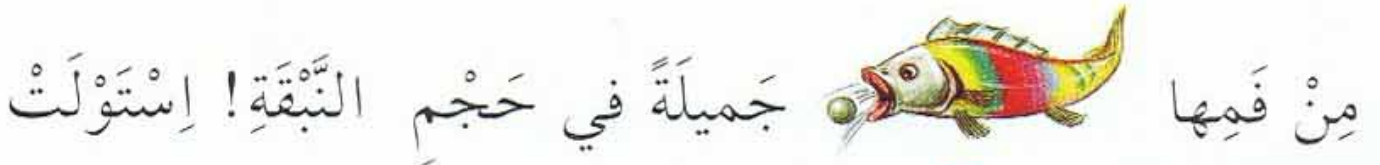 مِنْ فَمِها جَميلَةً في حَجْمِ النَّبْقَةِ! اِسْتَوْلَتْ